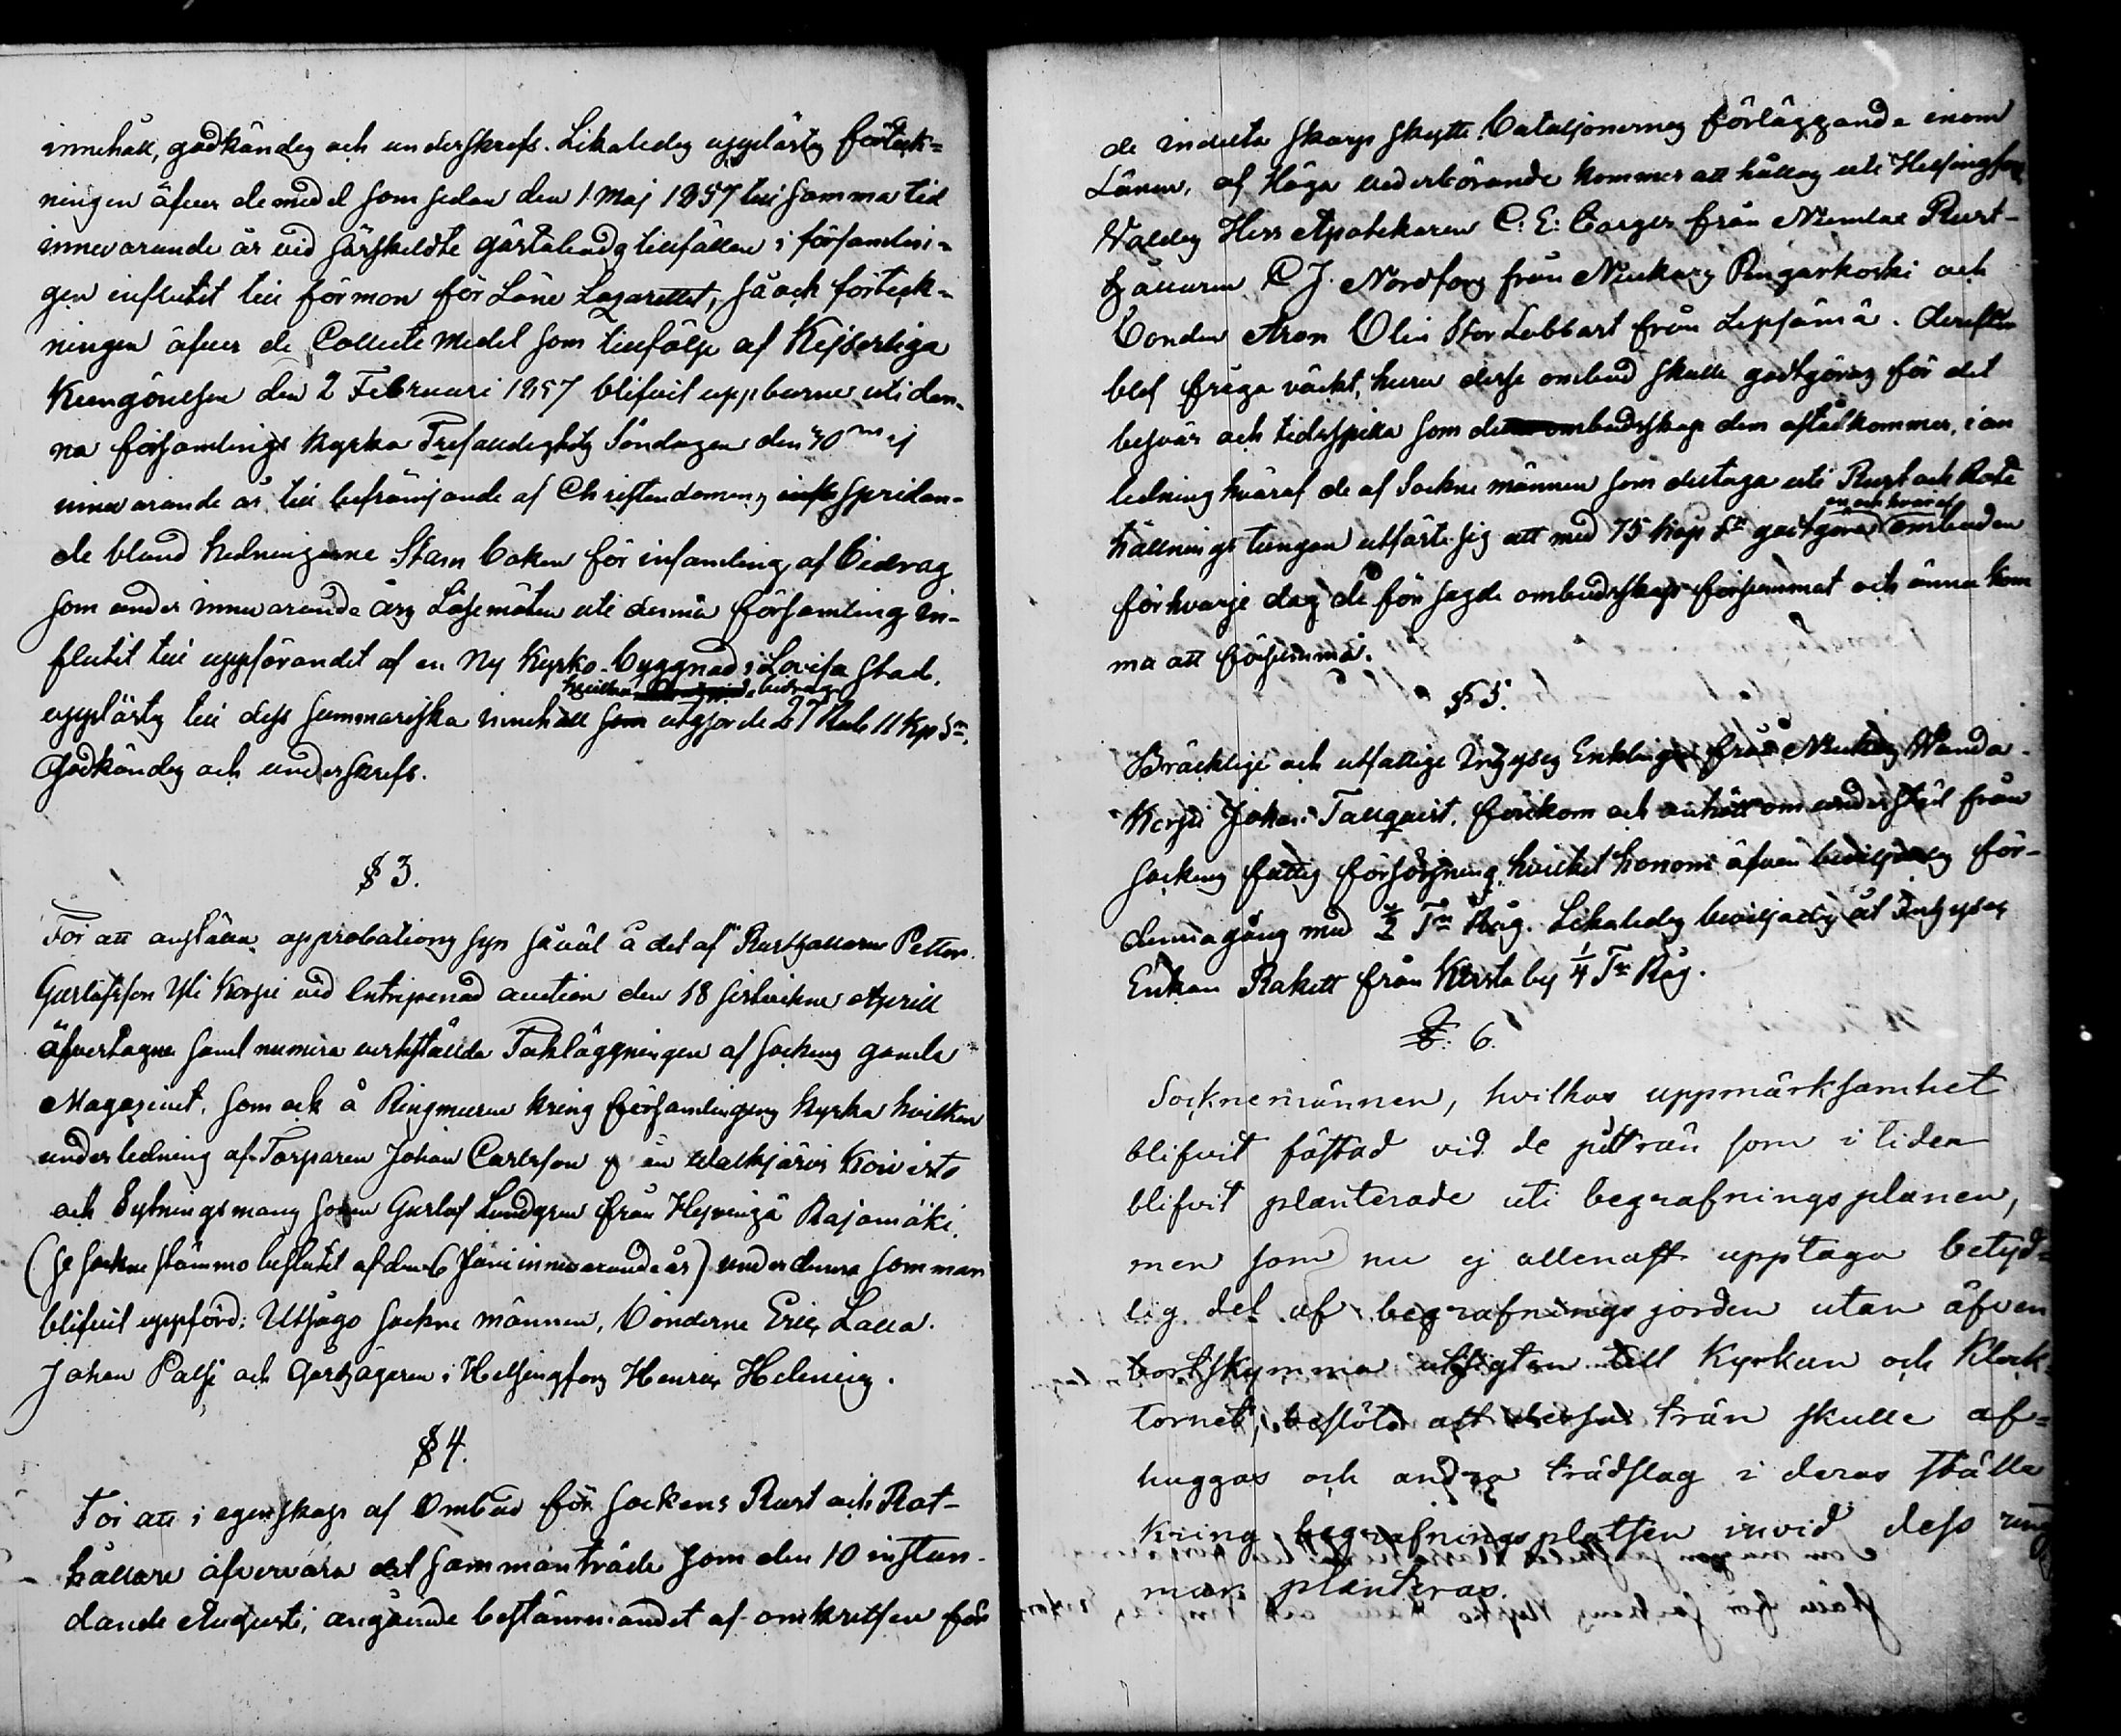 innehåll, godkändes och underskrefs. Likaledes upplästes förteck-
ningen öfver de medel som sedan den 1 Maj 1857 till samma tid
innevarande år vid särskeldte gästabuds tillfällen i församlin-
gen influtit till förmon för Läne Lazarettet, så ock förteck-
ningen öfver de Collecte medel som tillfölje af Kejserliga
Kungörelsen den 2 Februari 1857 blifvit uppburne uti den-
na församlings kyrka Trefaldighets Söndagen den 30 Maj
innevarande år till befrämjande af Christendomens spridan-
de bland hedningarne Stam boken för insamling af bidrag
som under innevarande års Läsemöten uti denna församling in-
flutit till uppförandet af en Ny Kyrko-byggnad i Lovisa stad,
hvilka bidrag
upplästes till dess summariska innehåll som utgjorde 27 Rub 11 Kp Sr,
Godkändes och underskrefs.
§ 3.
För att anställa approbations syn såväl å det af Rusthållaren Petter
Gustafsson Yli Korpi vid Entrepenad auction den 18 sistvickne Aprill
åfvertagna samt numera verkställda Takläggningen af sockens gamla
Magazinet, som ock å Ringmuren kring församlingens kyrka hvilken
under ledning af Torparen Johan Carlsson från Walkjärvi Koivisto
och Sytningsmans sonen Gustaf Lundgren från Hyvingä Rajamäki,
(se sockne stämmo beslutet af den 6 Juni innevarande år) under denna somman
blifvit uppförd: Utsågo sockne männen, bönderne Eric Lalla.
Johan Palsi och Gårdsägaren i Helsingfors Henric Helenius.
§ 4.
För att i egenskap af Ombud för sockens Rust och Rot-
hållare åfvervara det sammanträde som den 10 instun-
dande Augusti, angående bestämmandet af omkretsen för
de indelta skarpskytte Bataljonernes förläggande inom
Länen, af Höga vederbörande kommer att hållas uti Helsingfors
Valdes Herr Apothekaren C. E. Berger från Numlax Rust-
hållaren C J. Nordfors från Nurkars Pengarkoski och
bonden Aron Olin Stor Lubbart från Lepsämä. Derefter
blef fråga väckt, huru desse ombud skulle godtgöras för det
besvär och tidsspillan som ombudskap dem åstadkommer, i an
ledning hvaraf de af Sockne männen som deltaga uti Rust och Rote
en och hvar de
hållnings tungan utfäste sig att med 75 Kop Sr godtgöra ombuden
för hvarje dag de för sagde ombudskap försummat och ännu kom
ma att försumma.
§ 5.
Bräcklige och utfattige Inhyses Enklingen från Nurkars Wanda
Korpi Johan Tallqvist, förekom och anhöll om understöd från
sockens fattig försörjning, hvilket honom äfven beviljades för-
denna gång med ½ Tn Råg. Likaledes beviljades åt Inhyses
Enkan Rakett från Kersta by ¼ Tn Råg.
§. 6.
Socknemännen, hvilkas uppmärksamhet
blifvit fästad vid de trän som i tiden
blifvit planterade uti begrafningsplanen,
men som nu ej allenast upptaga betyd-
lig del af begrafnings jorden utan äfven
bortskymma utsigten till Kyrkan och Klock-
tornet, beslöto att dessa trän skulle af-
huggas och andra trädslag i deras ställe
kring begrafningsplatsen invid dess ring
mur planteras.